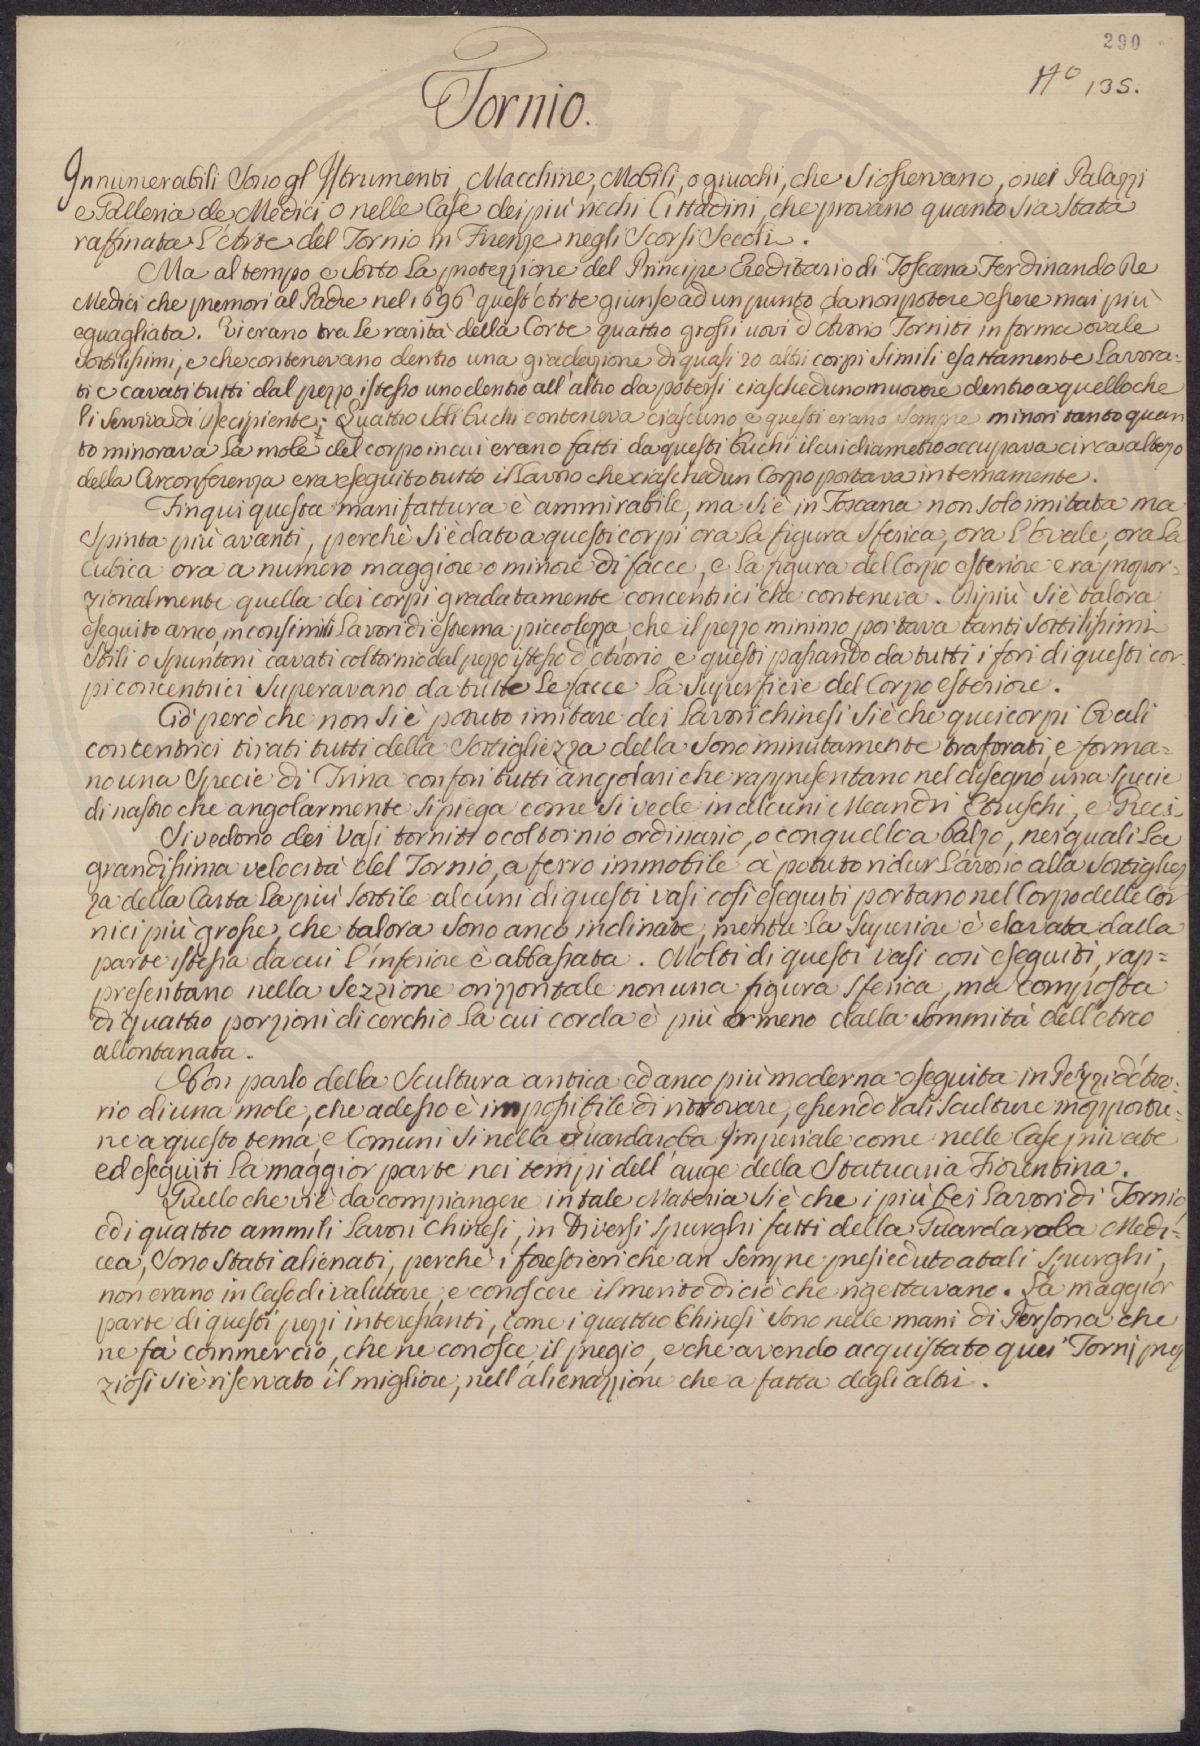 290
No 135.
Tornio.
Innumerabili Sono gl'Istrumenti, Macchine, Mobili, o giuochi, che si osservano, o nei Palazzi
e Galleria de Medici, o nelle Case dei più ricchi Cittadini, che provano quanto sia stata
raffinata L'Arte del Tornio in Firenze negli Scorsi Secoli.
Ma al tempo e sotto La protezzione del Principe Ereditario di Toscana Ferdinando De
Medici che premorì al Padre nel 1696 quest'Arte giunse ad un punto da non potere essere mai più
eguagliata. Vi erano tra Le rarità della Corte quattro grossi uovi d'Avorio Torniti in forma ovale
sottilissimi, e che contenevano dentro una gradazione di quasi 20 altri corpi simili esattamente Lavora=
ti e cavati tutti dal pezzo istesso uno dentro all'altro da potersi ciascheduno muovere dentro a quello che
li serviva di Recipiente; Quattro soli buchi conteneva ciascuno e questi erano sempre minori tanto quan
to minorava La mole del corpo in cui erano fatti da questi buchi il cui diametro occupava circa al terzo
della Circonferenza era eseguito tutto il Lavoro che ciaschedun Corpo portava internamente.
Fin qui questa manifattura è ammirabile, ma si è in Toscana non solo imitata ma
Spinta più avanti, perchè si è dato a questi corpi ora La figura sferica, ora L'Ovale, ora La
Cubica ora a numero maggiore o minore di facce, e La figura del Corpo esteriore era propor=
zionalmente quella dei corpi gradatamente concentrici che conteneva. Di più si è talora
eseguito anco, in consimili Lavori di estrema piccolezza, che il pezzo minimo portava tanti sottilissimi
Stili o Spuntoni cavati col tornio dal pezzo istesso d'Avorio, e questi passando da tutti i fori di questi cor
pi concentrici Superavano da tutte Le facce La Superficie del Corpo esteriore.
Ciò però che non si è potuto imitare dei Lavori chinesi si è che quei corpi Ovali
concentrici tirati tutti della Sottigliezza della sono minutamente traforati, e forma=
no una Specie di Trina con fori tutti angolari che rappresentano nel disegno, una specie
di nastro che angolarmente si piega come si vede in alcuni Meandri Etruschi, e Greci.
Si vedono dei Vasi torniti o col tornio ordinario, o con quello a balzo, nei quali La
grandissima velocità del Tornio, a ferro immobile à potuto ridur Lavorio alla Sottigliez
za della Carta La più Sottile alcuni di questi vasi così eseguiti portano nel Corpo delle Cor
nici più grosse, che talora sono anco inclinate, mentre La Superiore è elevata dalla
parte istessa da cui L'inferiore è abbassata. Molti di questi vasi così eseguiti, rap=
presentano nella Sezzione orizzontale non una figura Sferica, ma composta
di quattro porzioni di cerchio La cui corda è più o meno dalla Sommità dell'Arco
allontanata.
Non parlo della Scultura antica ed anco più moderna eseguita in Pezzi d'Avo=
rio di una mole, che adesso è impossibile di ritrovare, essendo tali Sculture inopportu=
ne a questo tema, e Comuni si nella Guardaroba Imperiale come nelle Case private
ed eseguiti La maggior parte nei tempi dell'auge della Statuaria Fiorentina.
Quello che vi è da compiangere in tale Materia si è che i più bei Lavori di Tornio
ed i quattro Lavori Chinesi, in Diversi Spurghi fatti della Guardaroba Medi=
cea, Sono Stati alienati, perche i forestieri che an Sempre presieduto a tali Spurghi,
non erano in Caso di valutare, e conoscere il merito di ciò che rigettavano. La maggior
parte di questi pezzi interessanti, Come i quattro Chinesi sono nelle mani di Persona che
ne fà commercio, che ne conosce il pregio, e che avendo acquistato quei Torni pre
ziosi si è riservato il migliore, nell'alienazzione che a fatta degli altri.